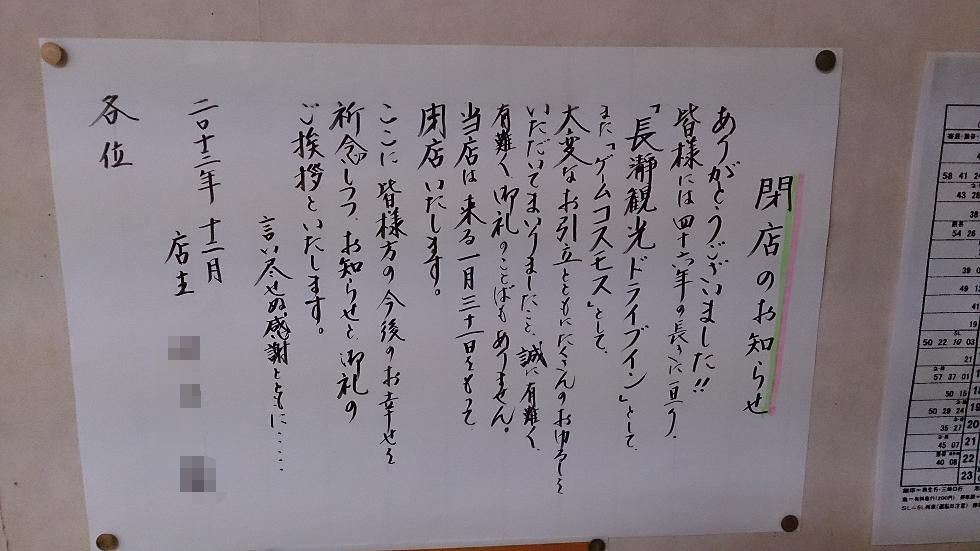 閉店のお知らせ
ありがとうございました!!
皆様には四十六年の長きに亘り、
「長瀞観光ドライブイン」として、
また「ゲームコスモス」として、
大変なお引立とともにたくさんのおゆるしを
いただいてまいりましたこと、誠に有難く、
有難く御礼のことばもありません。
当店は来る一月三十一日をもって
閉店いたします。
ここに皆様方の今後のお幸せを
祈念しつつ、お知らせと、御礼の
ご挨拶といたします。
言い尽せぬ感謝とともに……
二〇十二年 十二月
店主
各位
58 41 24
43 28
54 26
50 22 10 03
57 37 01
50 15
50 29 24
19
35 27
20
45 07
21
40 08
22
23